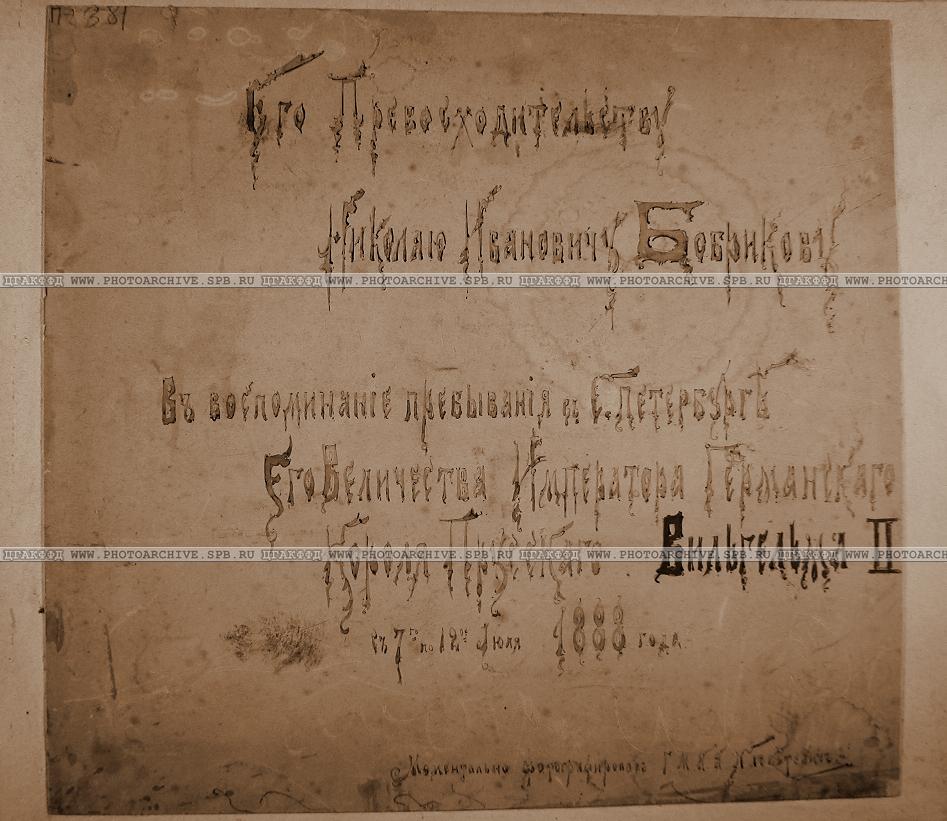 П2381
Его Превосходительству
Николаю Ивановичу Бобрикову
ЦГАКФФД WWW.PHOTOARCHIVE.SPB.RU ЦГАКФФД WWW.PHOTOARCHIVE.SPB.RU ЦГАКФФД WWW.PHOTOARCHIVE.SPB.RU ЦГАКФФД WWW.PHOTOARCH
Въ воспоминаніе пребыванія въ С. Петербургѣ
Его Величества Императора Германскаго
Короля Прусскаго Вильгельма II
ЦГАКФФД WWW.PHOTOARCHIVE.SPB.RU ЦГАКФФД WWW.PHOTOARCHIVE.SPB.RU ЦГАКФФД WWW.PHOTOARCHIVE.SPB.RU ЦГАКФФД WWW.PHOTOARCH
съ 7го по 12ое Іюля 1888 года.
Моментально фотографировалъ